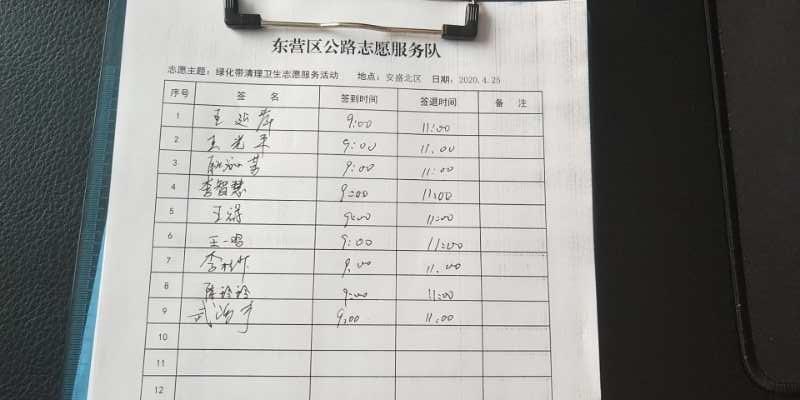 东营区公路志愿服务队
志愿主题：绿化带清理卫生志愿服务活动 地点：安盛北区 日期：2020.4.25
序号 签 名 签到时间 签退时间 备 注
1 9:00 11:00
2 王光平 9:00 11.00
3 9:00 11:00
4 李智慧 9:00 11:00
5 王 9:00 11:00
6 王一鸣 9:00 11:00
7 李 9.00 11.00
8 陈玲玲 9:00 11:00
9 武 9.00 11.00
10
11
12